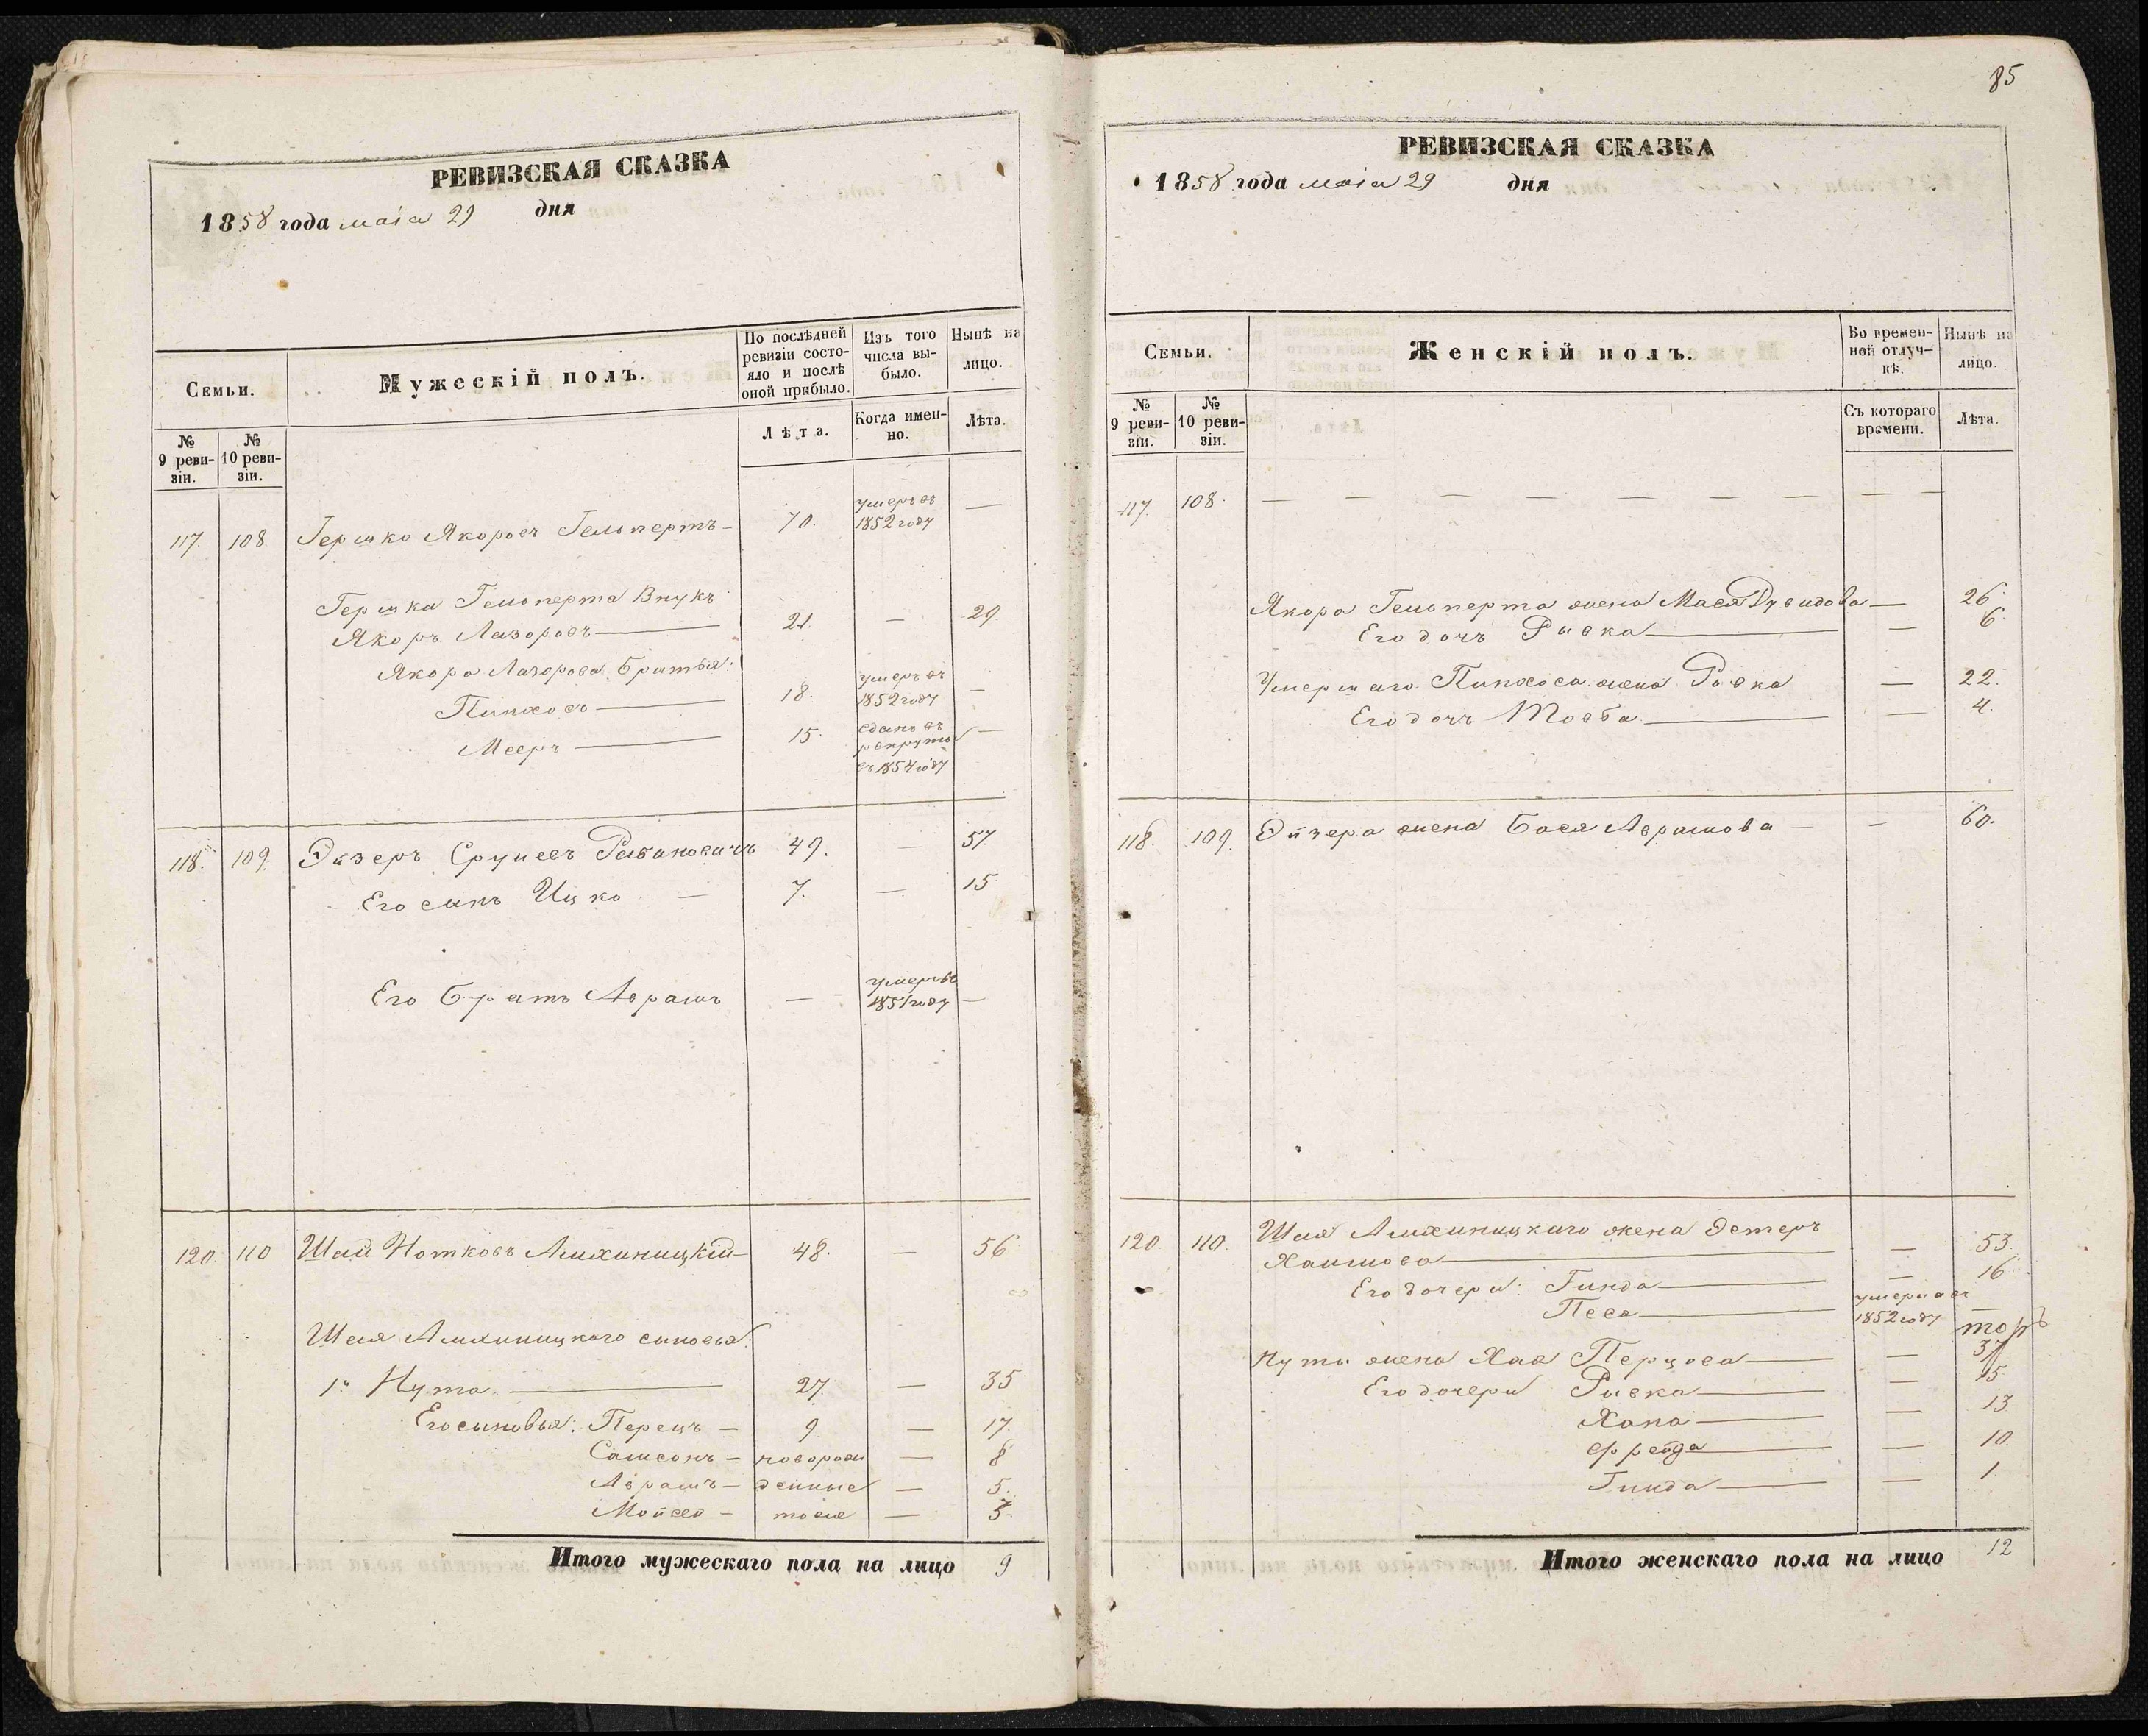 РЕВИЗСКАЯ СКАЗКА
1858 года маія 29 дня
Семьи.
Мужескій полъ.
По послѣдней ревизіи состояло и послѣ оной прибыло.
Изъ того числа выбыло.
Нынѣ на лицо.
№ 9 ревизіи.
№ 10 ревизіи.
Лѣта.
Когда именно.
Лѣта.
117. 108. Гершко Якоровъ Гельпертъ — 70. умеръ въ 1852 году —
Гершка Гельперта Внукъ
Якоръ Лазоровъ — 21. — 29.
Якора Лазорова Братья:
Пинхосъ — 18. умеръ въ 1852 году —
Мееръ — 15. сданъ въ рекруты въ 1854 году —
118. 109. Эйзеръ Срулевъ Рабиновичъ 49. — 57.
Его сынъ Ицко — 7. — 15
Его Братъ Аврамъ — умеръ въ 1851 году —
120. 110 Шая Нотковъ 48. — 56
Шая сыновья:
1й Нута — 27. — 35
Его сыновья: Перецъ — 9 — 17.
Самсонъ — новорож — 8
Аврамъ — денные — 5.
Мойсей — после — 3.
Итого мужескаго пола на лицо 9
85
РЕВИЗСКАЯ СКАЗКА
1858 года маія 29 дня
Семьи.
Женскій полъ.
Во временной отлучкѣ.
Нынѣ на лицо.
№ 9 ревизіи.
№ 10 ревизіи.
Съ котораго времени.
Лѣта.
117. 108. — — — — — — — — —
Якора Гельперта жена Мася Дувидова — — 26.
Его дочь Рывка — — 6.
Умершаго Пинхоса жена Рывка — 22.
Его дочь Товба — — 4.
118. 109. Эйзера жена Бася Аврамова — — 60.
120. 110. Шая жена Эстеръ
Хаимова — — 53.
Его дочери: Гинда — — 16.
Песа — умерла въ 1852 году —
Нуты жена Хая Перцова — — 37
Его дочери Рывка — — 15
Хана — — 13
Фрейда — — 10.
Гинда — — 1.
Итого женскаго пола на лицо 12